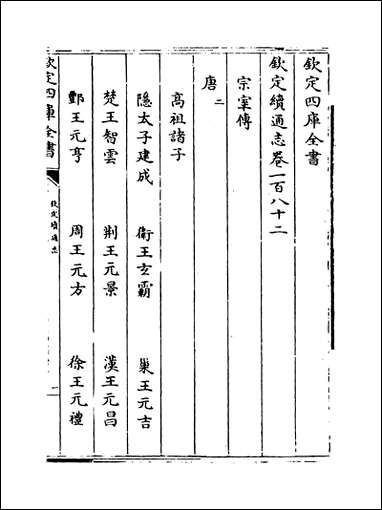 欽定四庫全書
欽定續通志卷一百八十二
宗室傳
唐二
高祖諸子
隱太子建成 衛王玄霸 巢王元吉
楚王智雲 荆王元景 漢王元昌
酆王元亨 周王元方 徐王元禮
欽定四庫全書
欽定續通志
一